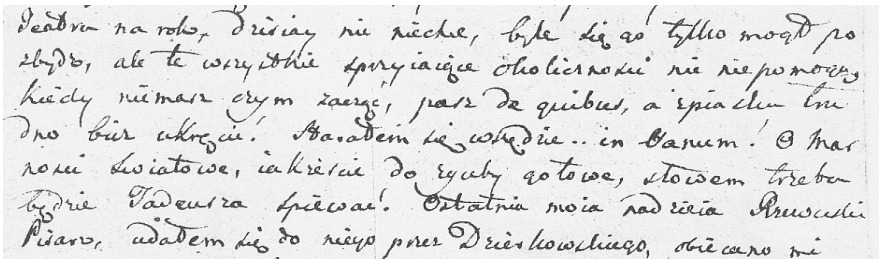 Teatru na rok, dzisiay nic niechce, byle się go tylko mogł po
zbydź, ale te wszystkie sprzyiaiące okoliczności nic niepomogą,
kiedy niemasz czym zacząć, pasz de quibus, a zpiasku tru
dno bicz ukręcić! Starałem się wszędzie .. in Vanum! O Mar
ności światowe, iakżeście do zguby gotowe, słowem trzeba
będzie Tadeusza spiewać! Ostatnia moia nadzieia Rzewuski
Pisarz, udałem się do niego przez Dzierkowskiego, obiecano mi